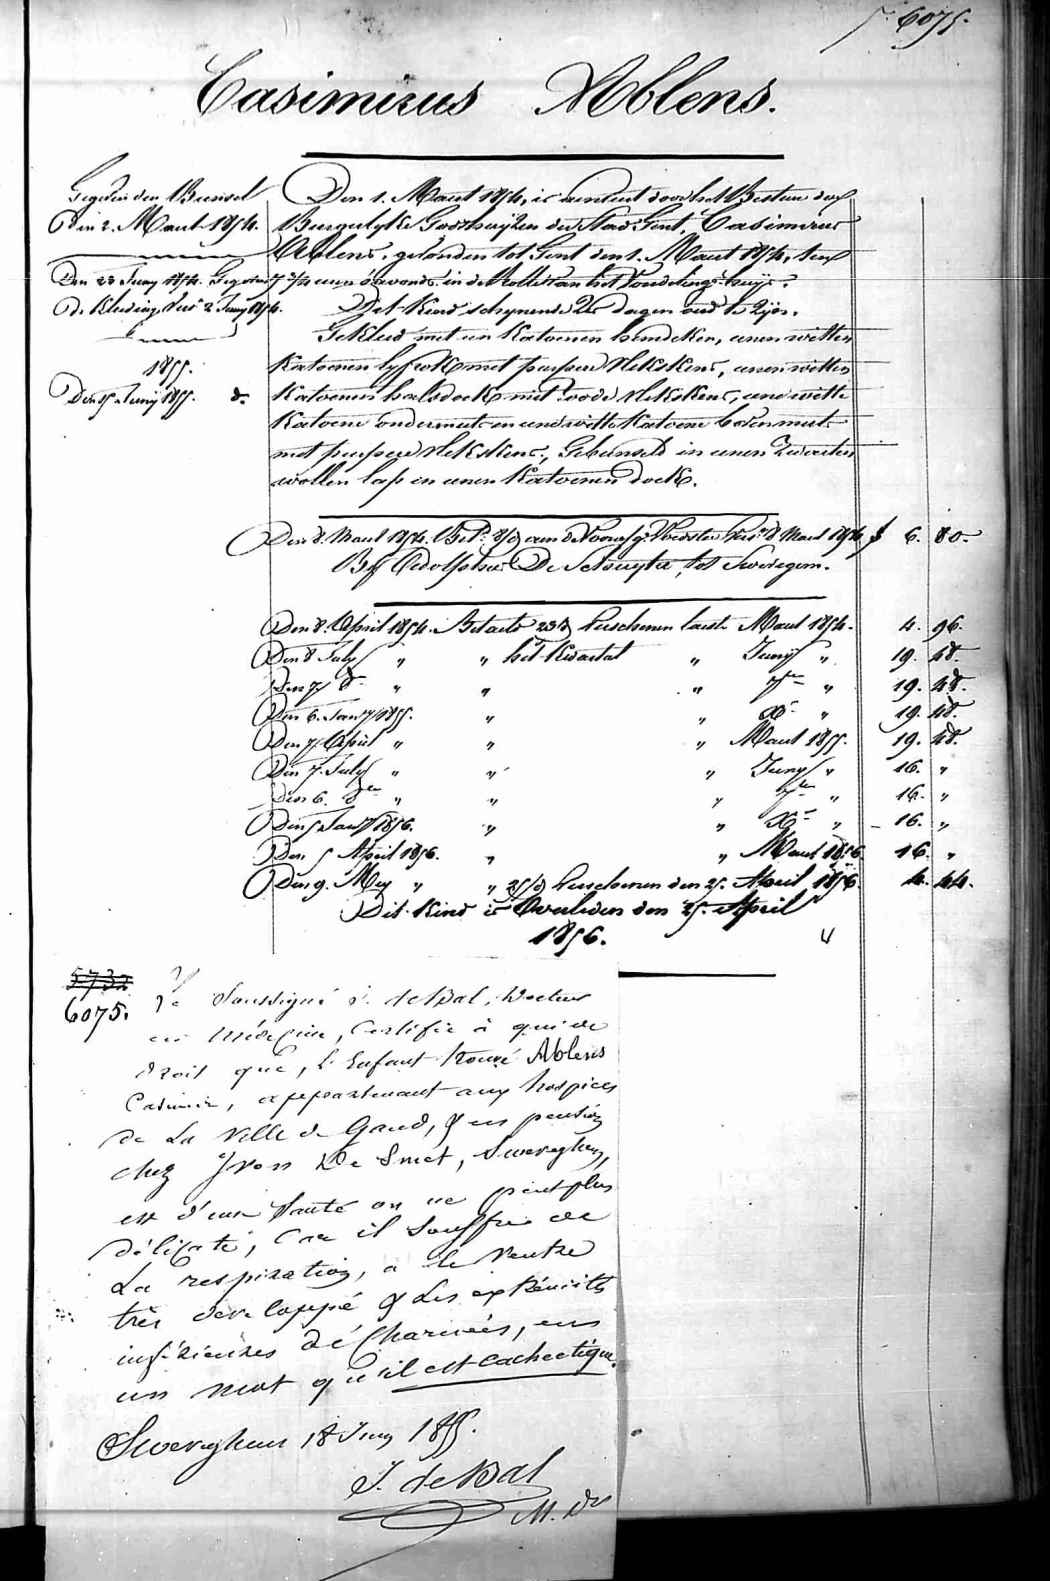 6075.
Casimirus Ablens.
Gegeven den Bunsel
Den 2. Maart 1854.
Den 23 Juny 1854. Gegeven
de Kleeding 2 Juny 1854.
1855.
Den 15 Juny 1855. do
Den 1. Maart 1854, is door het Bestier der
Burgerlyke Godshuyzen der Stad Gent, Casimirus
Ablens, gevonden tot Gent den 1. Maart 1854, ten
7 3/4 uren s'avonds in de Rolle van het Vondelings huys.
Dit Kind schynende 2 dagen oud te Zyn.
Gekleed met een Katoenen hemdeken, eenen witten
Katoenen lyfrok met purpere vlekskens, eenen witten
Katoenen halsdoek met roode vlekskens, eene witte
Katoene ondermuts en eene witte Katoene bovenmuts
met purpere vlekskens, Gebunseld in eenen Zwarten
wollen lap en eenen Katoenen doek.
Den 8. Maart 1854. aan de Voedster 8 Maart 1854 f 6. 80.
By Adolphe De Schuyter, tot Sweregem.
Den 8. April 1854. Betaelt 23/d verschenen laest Maart 1854. 4. 96.
Den 8 July " " het Kwartal " Juny " 19. 48.
Den 7 8e " " " 7re " 19. 48.
Den 6. Jany 1855. " " Xe " 19. 48.
Den 7 April " " " Maart 1855. 19. 48.
Den 7. July " " " Juny " 16. "
Den 6. 8re " " " 7re " 16. "
Den 5 Jany 1856. " " Xe " 16. "
Den 5 April 1856. " " Maart 1856 16. "
Den 9. Mey " " 25/d verschenen den 25. April 1856. 4. 44.
Dit Kind is Overleden den 25. April
1856.
5732
6075.
Je Soussigné J. de Bal, Docteur
en Médecine, Certifie à qui de
droit que, l'Enfant trouvé Ablens
Casimir, appartenant aux hospices
de La Ville de Gand, & en pension
chez Yvon De Smet, Sweveghem,
est d'une Santé on ne peut plus
délicate, Car il Souffre de
La respiration, a le Ventre
très developpé & Les extrémités
inférieures décharnées, en
un mot qu'il est Cachectique.
Sweveghem 18 Juny 1855.
J. de Bal
M. Dr